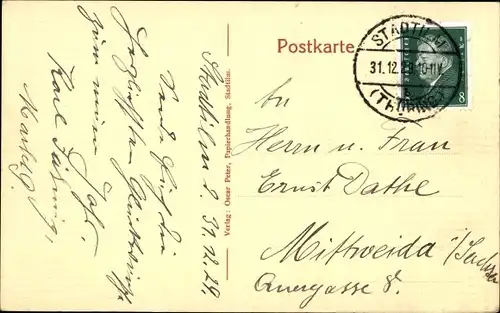 Postkarte
STADTILM
31.12.29.10-11V.
(THÜRING.)
8
An
Herrn u. Frau
Ernst Dathe
Mittweida i/Sachsen
Quergasse 8.
Verlag: Oscar Peter, Papierhandlung, Stadtilm.
Stadtilm d. 31.12.29.
Sende Euch die
herzlichsten Glückwünsche
zum neuen Jahr.
Karl